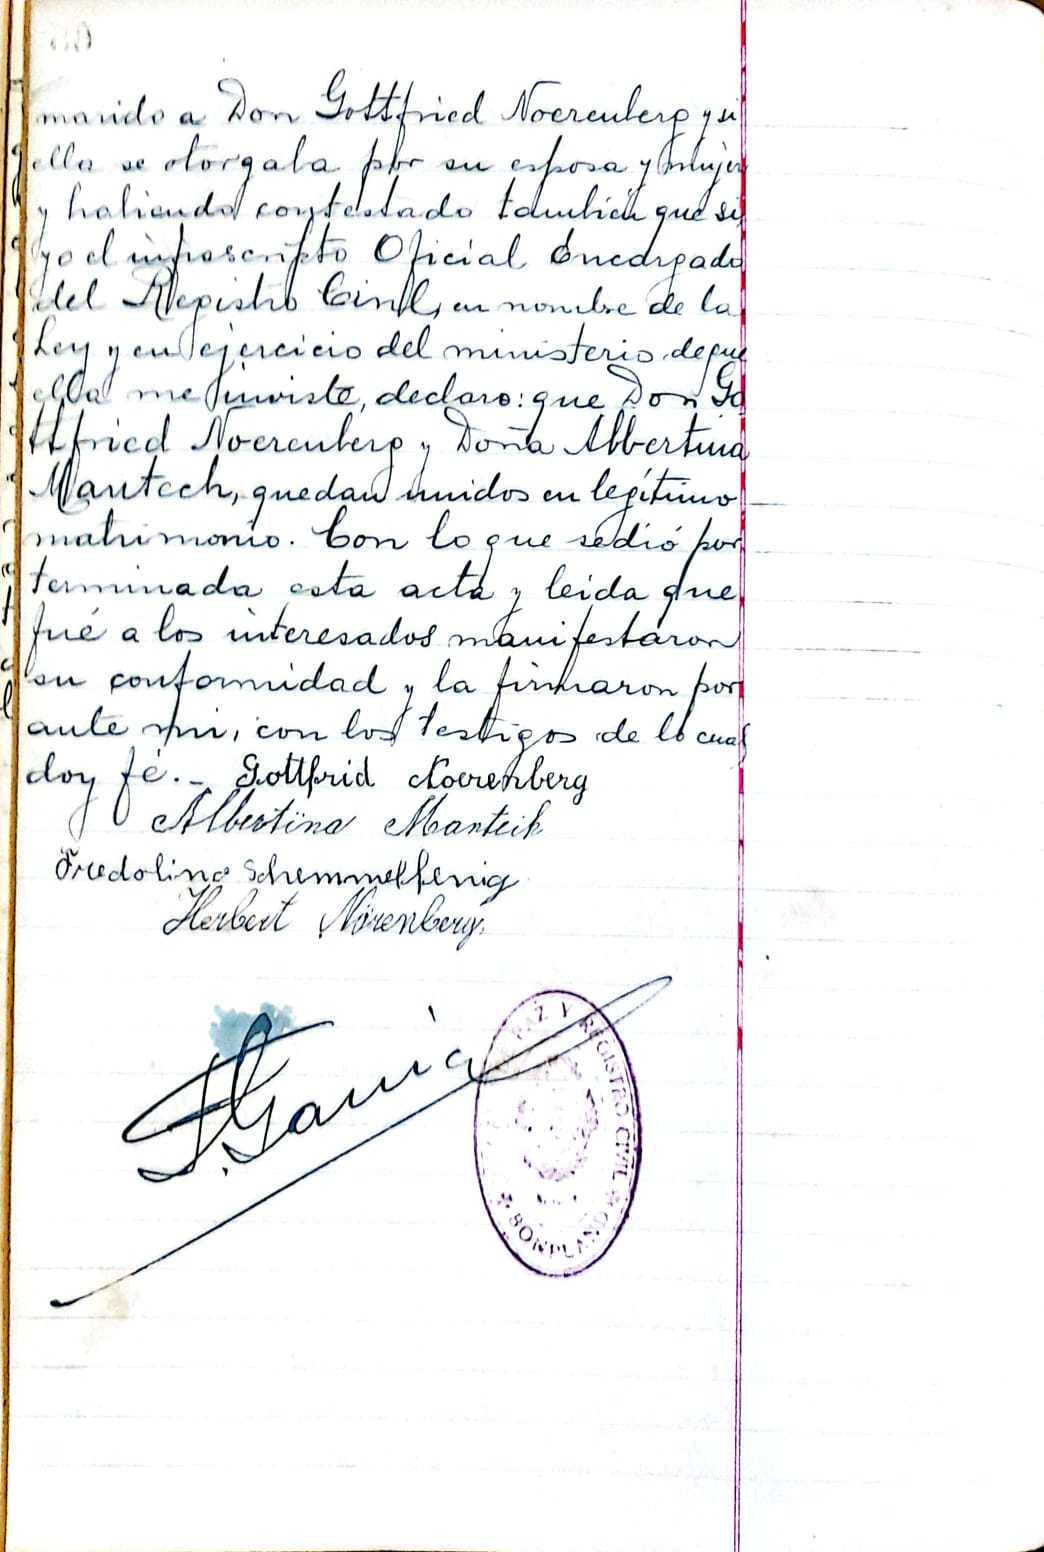 marido a Don Gottfried Noerenberg y si
ella se otorgaba por su esposa y mujer
y habiendo contestado también que si,
yo el infrascripto Oficial Encargado
del Registro Civil, en nombre de la
Ley y en ejercicio del ministerio de que
ella me inviste, declaro: que Don Go
ttfried Noerenberg y Doña Albertina
Mantech, quedan unidos en legítimo
matrimonio. Con lo que se dió por
terminada esta acta y leida que
fué a los interesados manifestaron
su conformidad y la firmaron por
ante mi, con los testigos de lo cual
doy fé. - Gottfrid Noerenberg
Albertina Manteik
Fredolino Schemmelfenig
Herbert Nörenberg.
F. Garcia
PAZ Y REGISTRO CIVIL
* BONPLAND *